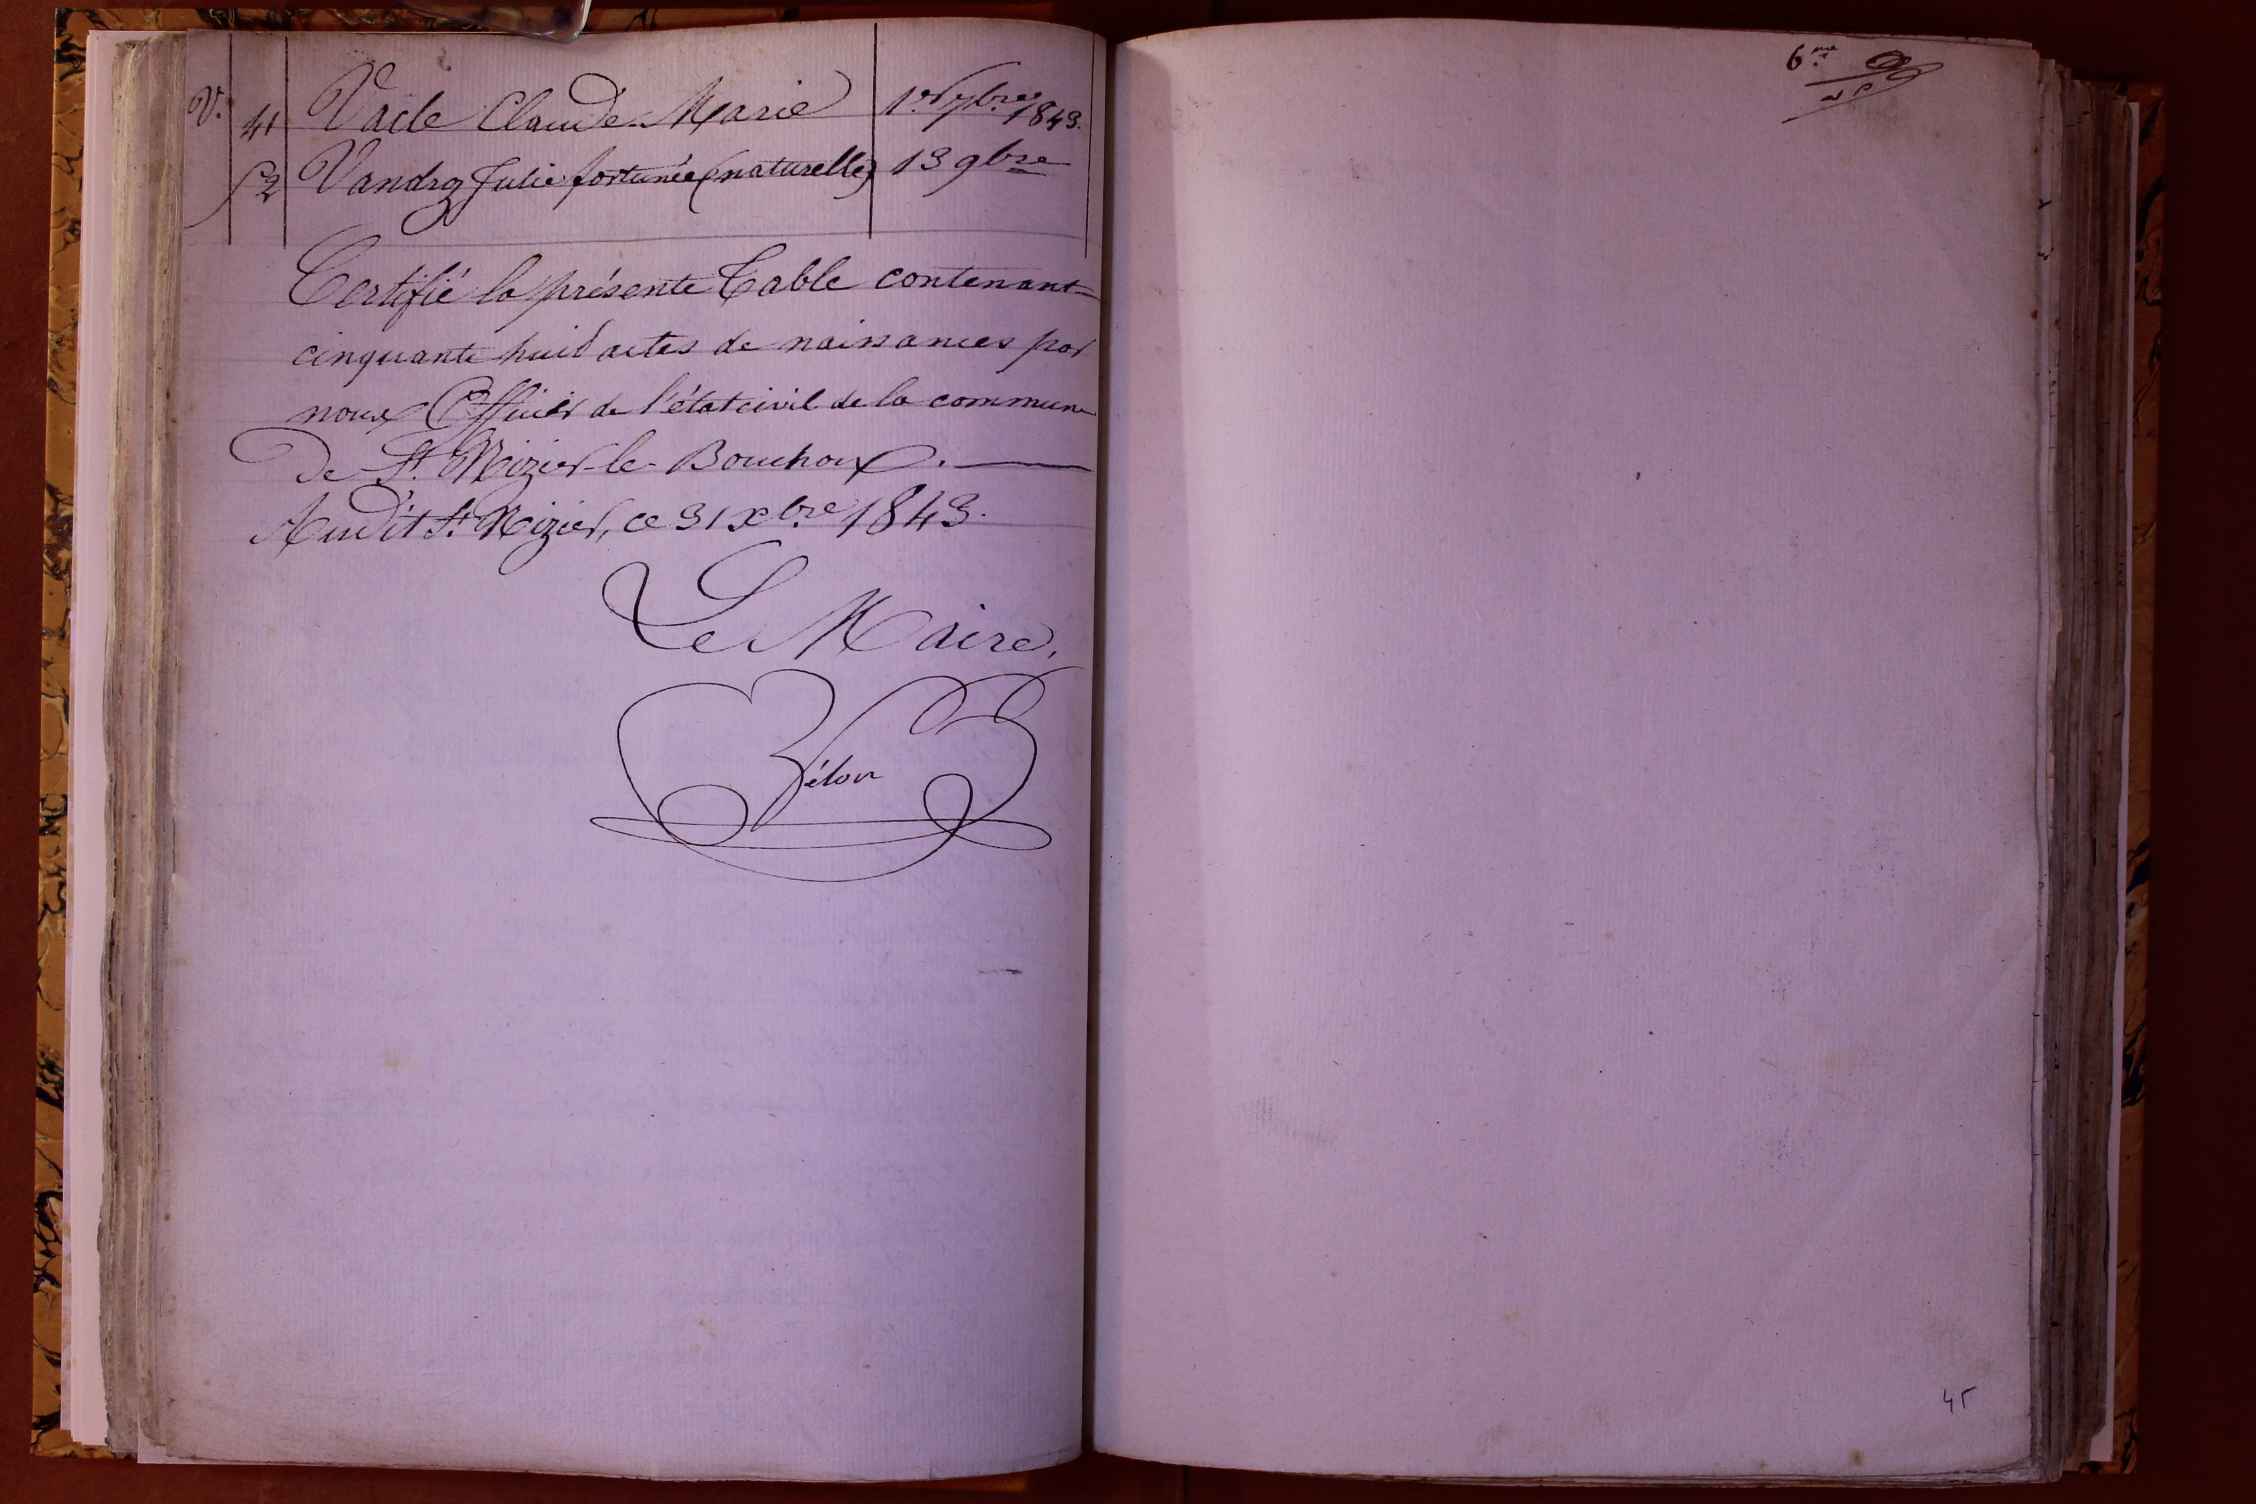 V. 41 Vacle Claude-Marie 1er 7bre 1843.
52 Vandrg Julie fortunée (naturelle) 13 9bre
Certifié la présente Table contenant
cinquante huit actes de naissances par
nous Officier de l'état civil de la commune
De St. Nizier-le-Bouchoux.
Audit St. Nizier, ce 31 xbre 1843.
Le Maire,
6me
45